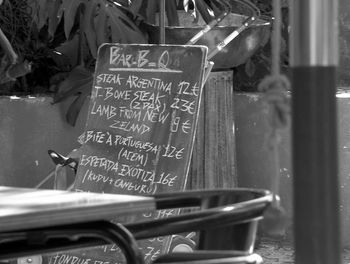 BAR-B-Q
STEAK ARGENTINA 12€
T. BONE STEAK
(2PAX) 23€
LAMB FROM NEW
ZELAND 9€
BIFE À PORTUGUESA
(ACEM) 12€
ESPETADA EXÓTICA
(KUDU+CANGURU) 16€